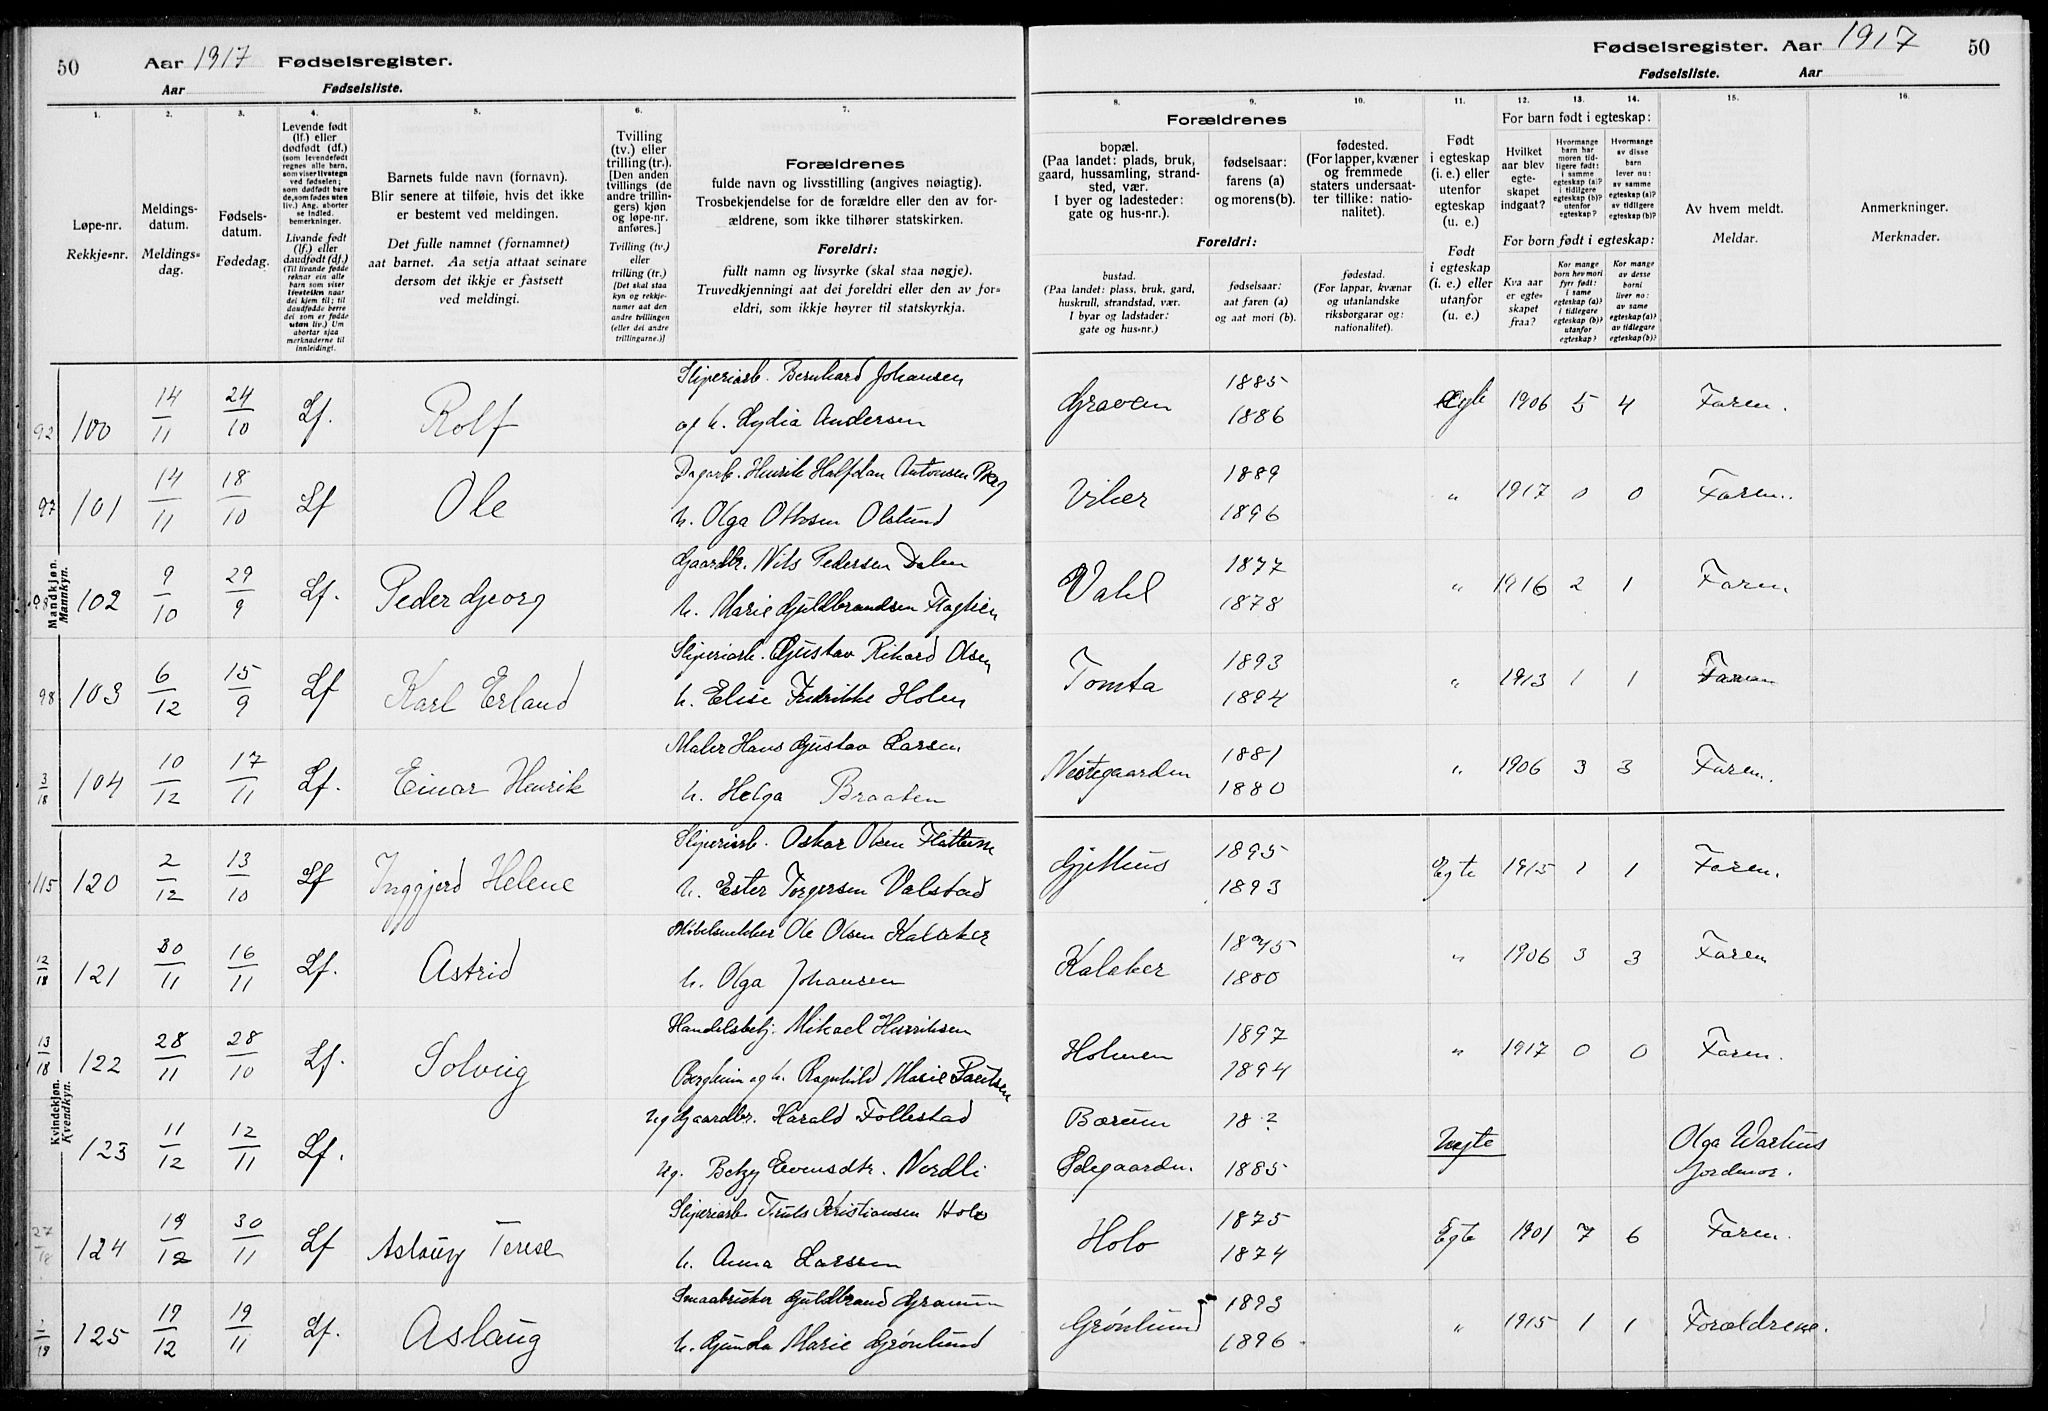 50 Aar 1917 Fødselsregister.
Aar Fødselsliste.
Fødselsregister. Aar 1917 50
Fødselsliste. Aar
1. 2. 3. 4. 5. 6. 7. 8. 9. 10. 11. 12. 13. 14. 15. 16.
Løpe-nr.
Rekkje-nr.
Meldings-
datum.
Meldings-
dag.
Fødsels-
datum.
Fødedag.
Levende født
(lf.) eller
dødfødt (df.)
(som levendefødt
regnes alle barn,
som viser livstegn
ved fødselen;
som dødfødt bare
de, som fødes uten
liv.) Ang. aborter
se Indled.
bemerkninger.
Livande født
(lf.) eller
daudfødt (df.)
(Til livande fødde
reknar ein alle
barn som viser
livsteikn naar
dei kjem til; til
daudfødde berre
dei som er fødde
utan liv.) Um
abortar sjaa
merknaderne til
innleiding!.
Barnets fulde navn (fornavn).
Blir senere at tilføie, hvis det ikke
er bestemt ved meldingen.
Det fulle namnet (fornamnet)
aat barnet. Aa setja attaat seinare
dersom det ikkje er fastsett
ved meldingi.
Tvilling
(tv.) eller
trilling (tr.).
[Den anden
tvillings (de
andre trillin-
gers) kjøn
og løpe-nr.
anføres.]
Tvilling (tv.)
eller
trilling (tr.)
[Det skal staa
kyn og rekkje-
numer aat den
andre tvillingen
(eller dei andre
trillingarne.)]
Forældrenes
fulde navn og livsstilling (angives nøiagtig).
Trosbekjendelse for de forældre eller den av for-
ældrene, som ikke tilhører statskirken.
Foreldri:
fullt namn og livsyrke (skal staa nøgje).
Truvedkjenningi aat dei foreldri eller den av for-
eldri, som ikkje høyrer til statskyrkja.
Forældrenes
bopæl.
(Paa landet: plads, bruk,
gaard, hussamling, strand-
sted, vær.
I byer og ladesteder:
gate og hus-nr.).
fødselsaar:
farens (a)
og morens (b).
fødested.
(For lapper, kvæner
og fremmede
staters undersaat-
ter tillike: natio-
nalitet).
Foreldri:
bustad.
(Paa landet: plass, bruk, gard,
huskrull, strandstad, vær.
I byar og ladstader:
gate og hus-nr.)
fødselsaar:
aat faren (a)
og aat mori (b).
fødestad.
(For lappar, kvænar
og utanlandske
riksborgarar og:
nationalitet).
Født
i egteskap
(i. e.) eller
utenfor
egteskap
(u. e.)
Født
i egteskap
(i. e.) eller
utanfor
egteskap
(u. e.)
For barn født i egteskap:
Hvilket
aar blev
egte-
skapet
indgaat?
Hvormange
barn har
moren tid-
ligere født:
i samme
egteskap (a)?
i tidligere
egteskap (b)?
utenfor
egteskap?
Hvormange
av disse
barn
lever nu:
av samme
egteskap (a)?
av tidligere
egteskap (b)?
For born født i egteskap:
Kva aar
er egte-
skapet
fraa?
Kor mange
born hev mori
fyrr født:
i same
egteskap (a)?
i tidlegare
egteskap (b)?
utanfor
egteskap?
Kor mange
av desse
borni
liver no:
av same
egteskap (a)?
av tidlegare
egteskap (b)?
Av hvem meldt.
Meldar.
Anmerkninger.
Merknader.
Mandkjøn.
Mannkyn.
92 100 14/11 24/10 Lf. Rolf Sliperiarb. Bernhard Johansen Graven 1885 Egte 1906 5 4 Faren.
og h. Lydia Andersen 1886
97 101 14/11 18/10 Lf Ole Dagarb. Henrik Halfdan Antonsen Viker 1889 " 1917 0 0 Faren.
h. Olga Olstund 1896
102 9/10 29/9 Lf. Peder Georg Gaardbr. Nils Pedersen Dalen Vahl 1877 " 1916 2 1 Faren
h. Marie Guldbrandsen 1878
98 103 6/12 15/9 Lf Karl Erland Sliperiarb. Gustav Rikard Olsen Tomta 1893 " 1913 1 1 Faren
h. Elise Fredrikke Holen 1894
3/18 104 10/12 17/11 Lf. Einar Henrik Maler Hans Gustav Larsen Nestegaarden 1881 " 1906 3 3 Faren.
h. Helga Braaten 1880
Kvindekjøn.
Kvendkyn.
115 120 2/12 13/10 Lf Inggjerd Helene Sliperiarb. Oskar Olsen Gjethus 1895 Egte 1915 1 1 Faren.
h. Ester Torgersen Valstad 1893
12/18 121 30/11 16/11 Lf. Astrid Møbelsnekker Ole Olsen Kalaker Kalaker " 1906 3 3 Faren
h. Olga Johansen 1880
13/18 122 28/11 28/10 Lf. Solveig Handelsbetj. Mikael Henriksen Holmen 1897 " 1917 0 0 Faren.
Bergheim og h. Ragnhild Marie 1894
123 11/12 12/11 Lf. Ug Gaardbr. Harald Follestad Bærum 18 ? Uegte Olga Warhus
Ug. Betzy Evensdtr. Nordli Ødegaarden. 1885 Jordmor.
27/18 124 19/12 30/11 Lf Aslaug Terese Sliperiarb Truls Kristiansen Holo Holo 1875 Egte 1901 7 6 Faren.
h. Anna Larsen 1874
1/19 125 17/12 19/11 Lf. Aslaug Smaabruker Guldbrand Gronlund 1893 " 1915 1 1 Forældrene.
h. Gunda Marie Grønlund 1896